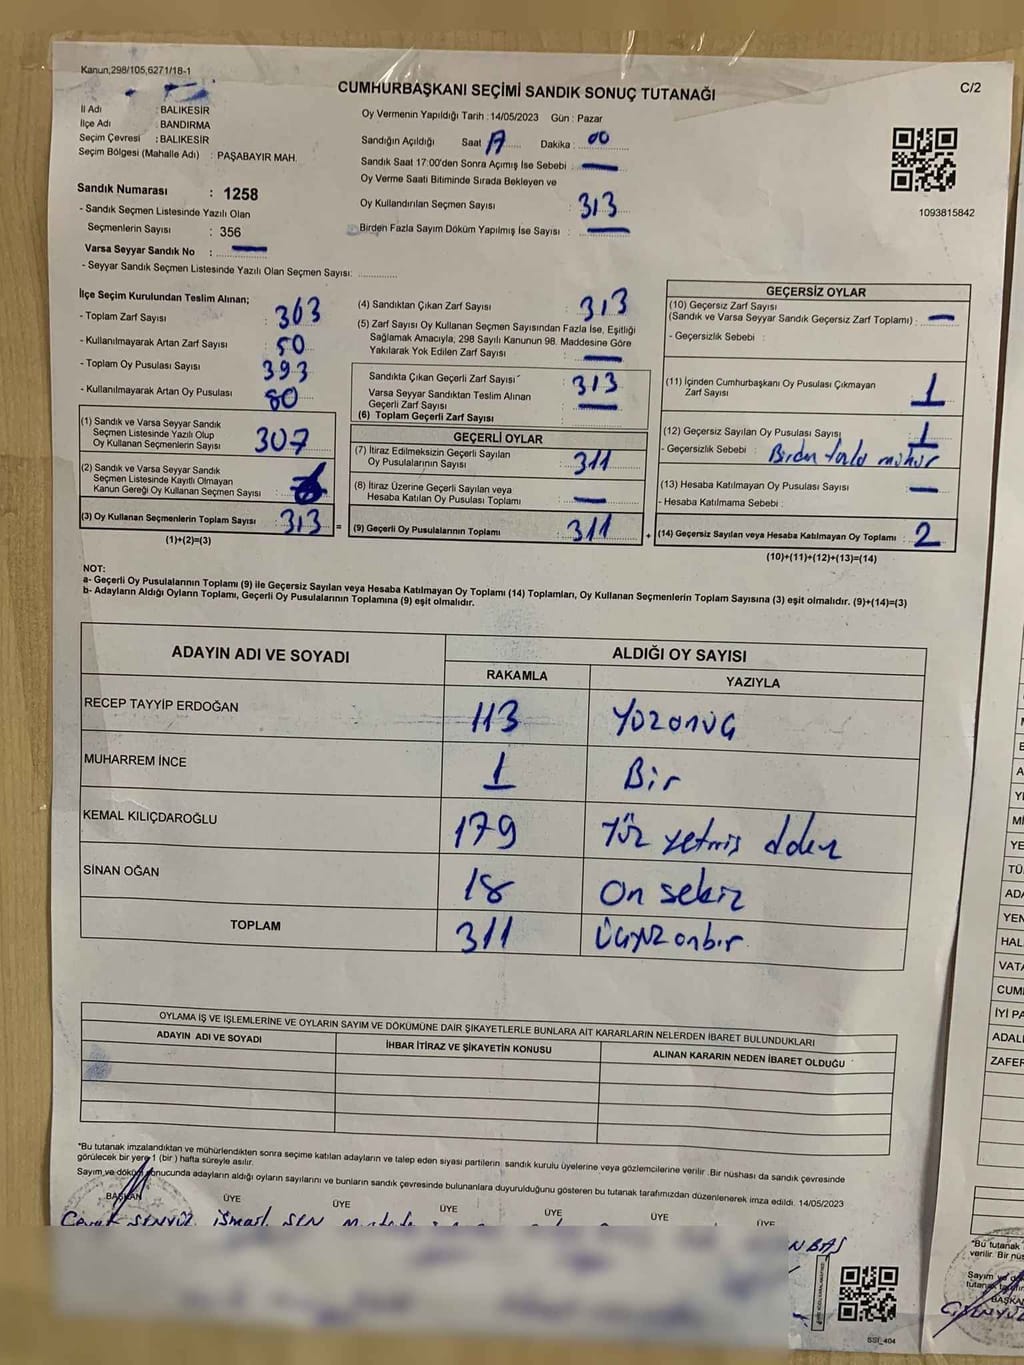 Kanun,298/105,6271/18-1
C/2
CUMHURBAŞKANI SEÇİMİ SANDIK SONUÇ TUTANAĞI
İl Adı : BALIKESİR
İlçe Adı : BANDIRMA
Seçim Çevresi : BALIKESİR
Seçim Bölgesi (Mahalle Adı) : PAŞABAYIR MAH.
Sandık Numarası : 1258
- Sandık Seçmen Listesinde Yazılı Olan
Seçmenlerin Sayısı : 356
Varsa Seyyar Sandık No :
- Seyyar Sandık Seçmen Listesinde Yazılı Olan Seçmen Sayısı:
Oy Vermenin Yapıldığı Tarih : 14/05/2023 Gün : Pazar
Sandığın Açıldığı Saat 17 Dakika : 00
Sandık Saat 17:00'den Sonra Açımış İse Sebebi :
Oy Verme Saati Bitiminde Sırada Bekleyen ve
Oy Kullandırılan Seçmen Sayısı : 313
Birden Fazla Sayım Döküm Yapılmış İse Sayısı :
1093815842
İlçe Seçim Kurulundan Teslim Alınan;
- Toplam Zarf Sayısı : 363
- Kullanılmayarak Artan Zarf Sayısı : 50
- Toplam Oy Pusulası Sayısı : 393
- Kullanılmayarak Artan Oy Pusulası : 80
(1) Sandık ve Varsa Seyyar Sandık
Seçmen Listesinde Yazılı Olup
Oy Kullanan Seçmenlerin Sayısı : 307
(2) Sandık ve Varsa Seyyar Sandık
Seçmen Listesinde Kayıtlı Olmayan
Kanun Gereği Oy Kullanan Seçmen Sayısı : 6
(3) Oy Kullanan Seçmenlerin Toplam Sayısı : 313 =
(1)+(2)=(3)
(4) Sandıktan Çıkan Zarf Sayısı : 313
(5) Zarf Sayısı Oy Kullanan Seçmen Sayısından Fazla İse, Eşitliği
Sağlamak Amacıyla, 298 Sayılı Kanunun 98. Maddesine Göre
Yakılarak Yok Edilen Zarf Sayısı :
Sandıkta Çıkan Geçerli Zarf Sayısı : 313
Varsa Seyyar Sandıktan Teslim Alınan
Geçerli Zarf Sayısı :
(6) Toplam Geçerli Zarf Sayısı
GEÇERLİ OYLAR
(7) İtiraz Edilmeksizin Geçerli Sayılan
Oy Pusulalarının Sayısı : 311
(8) İtiraz Üzerine Geçerli Sayılan veya
Hesaba Katılan Oy Pusulası Toplamı :
(9) Geçerli Oy Pusulalarının Toplamı : 311 +
GEÇERSİZ OYLAR
(10) Geçersiz Zarf Sayısı
(Sandık ve Varsa Seyyar Sandık Geçersiz Zarf Toplamı) :
- Geçersizlik Sebebi :
(11) İçinden Cumhurbaşkanı Oy Pusulası Çıkmayan
Zarf Sayısı : 1
(12) Geçersiz Sayılan Oy Pusulası Sayısı : 1
- Geçersizlik Sebebi : Birden fazla mühür
(13) Hesaba Katılmayan Oy Pusulası Sayısı :
- Hesaba Katılmama Sebebi :
(14) Geçersiz Sayılan veya Hesaba Katılmayan Oy Toplamı : 2
(10)+(11)+(12)+(13)=(14)
NOT:
a- Geçerli Oy Pusulalarının Toplamı (9) ile Geçersiz Sayılan veya Hesaba Katılmayan Oy Toplamı (14) Toplamları, Oy Kullanan Seçmenlerin Toplam Sayısına (3) eşit olmalıdır. (9)+(14)=(3)
b- Adayların Aldığı Oyların Toplamı, Geçerli Oy Pusulalarının Toplamına (9) eşit olmalıdır.
ADAYIN ADI VE SOYADI
ALDIĞI OY SAYISI
RAKAMLA YAZIYLA
RECEP TAYYİP ERDOĞAN 113 Yüzonüç
MUHARREM İNCE 1 Bir
KEMAL KILIÇDAROĞLU 179 Yüz yetmiş dokuz
SİNAN OĞAN 18 On sekiz
TOPLAM 311 Üçyüz onbir
OYLAMA İŞ VE İŞLEMLERİNE VE OYLARIN SAYIM VE DÖKÜMÜNE DAİR ŞİKAYETLERLE BUNLARA AİT KARARLARIN NELERDEN İBARET BULUNDUKLARI
ADAYIN ADI VE SOYADI İHBAR İTİRAZ VE ŞİKAYETİN KONUSU ALINAN KARARIN NEDEN İBARET OLDUĞU
*Bu tutanak imzalandıktan ve mühürlendikten sonra seçime katılan adayların ve talep eden siyasi partilerin sandık kurulu üyelerine veya gözlemcilerine verilir .Bir nüshası da sandık çevresinde
görülecek bir yere 1 (bir ) hafta süreyle asılır.
Sayım ve döküm sonucunda adayların aldığı oyların sayılarını ve bunların sandık çevresinde bulunanlara duyurulduğunu gösteren bu tutanak tarafımızdan düzenlenerek imza edildi. 14/05/2023
BAŞKAN ÜYE ÜYE ÜYE ÜYE ÜYE ÜYE
Cevat ŞENYÜZ İsmail ŞEN
SSİ_404
YEN
HAL
VATA
CUM
İYİ PA
ADAL
ZAFER
*Bu tutanak
verilir. Bir nüs
Sayım ve dö
BAŞKA